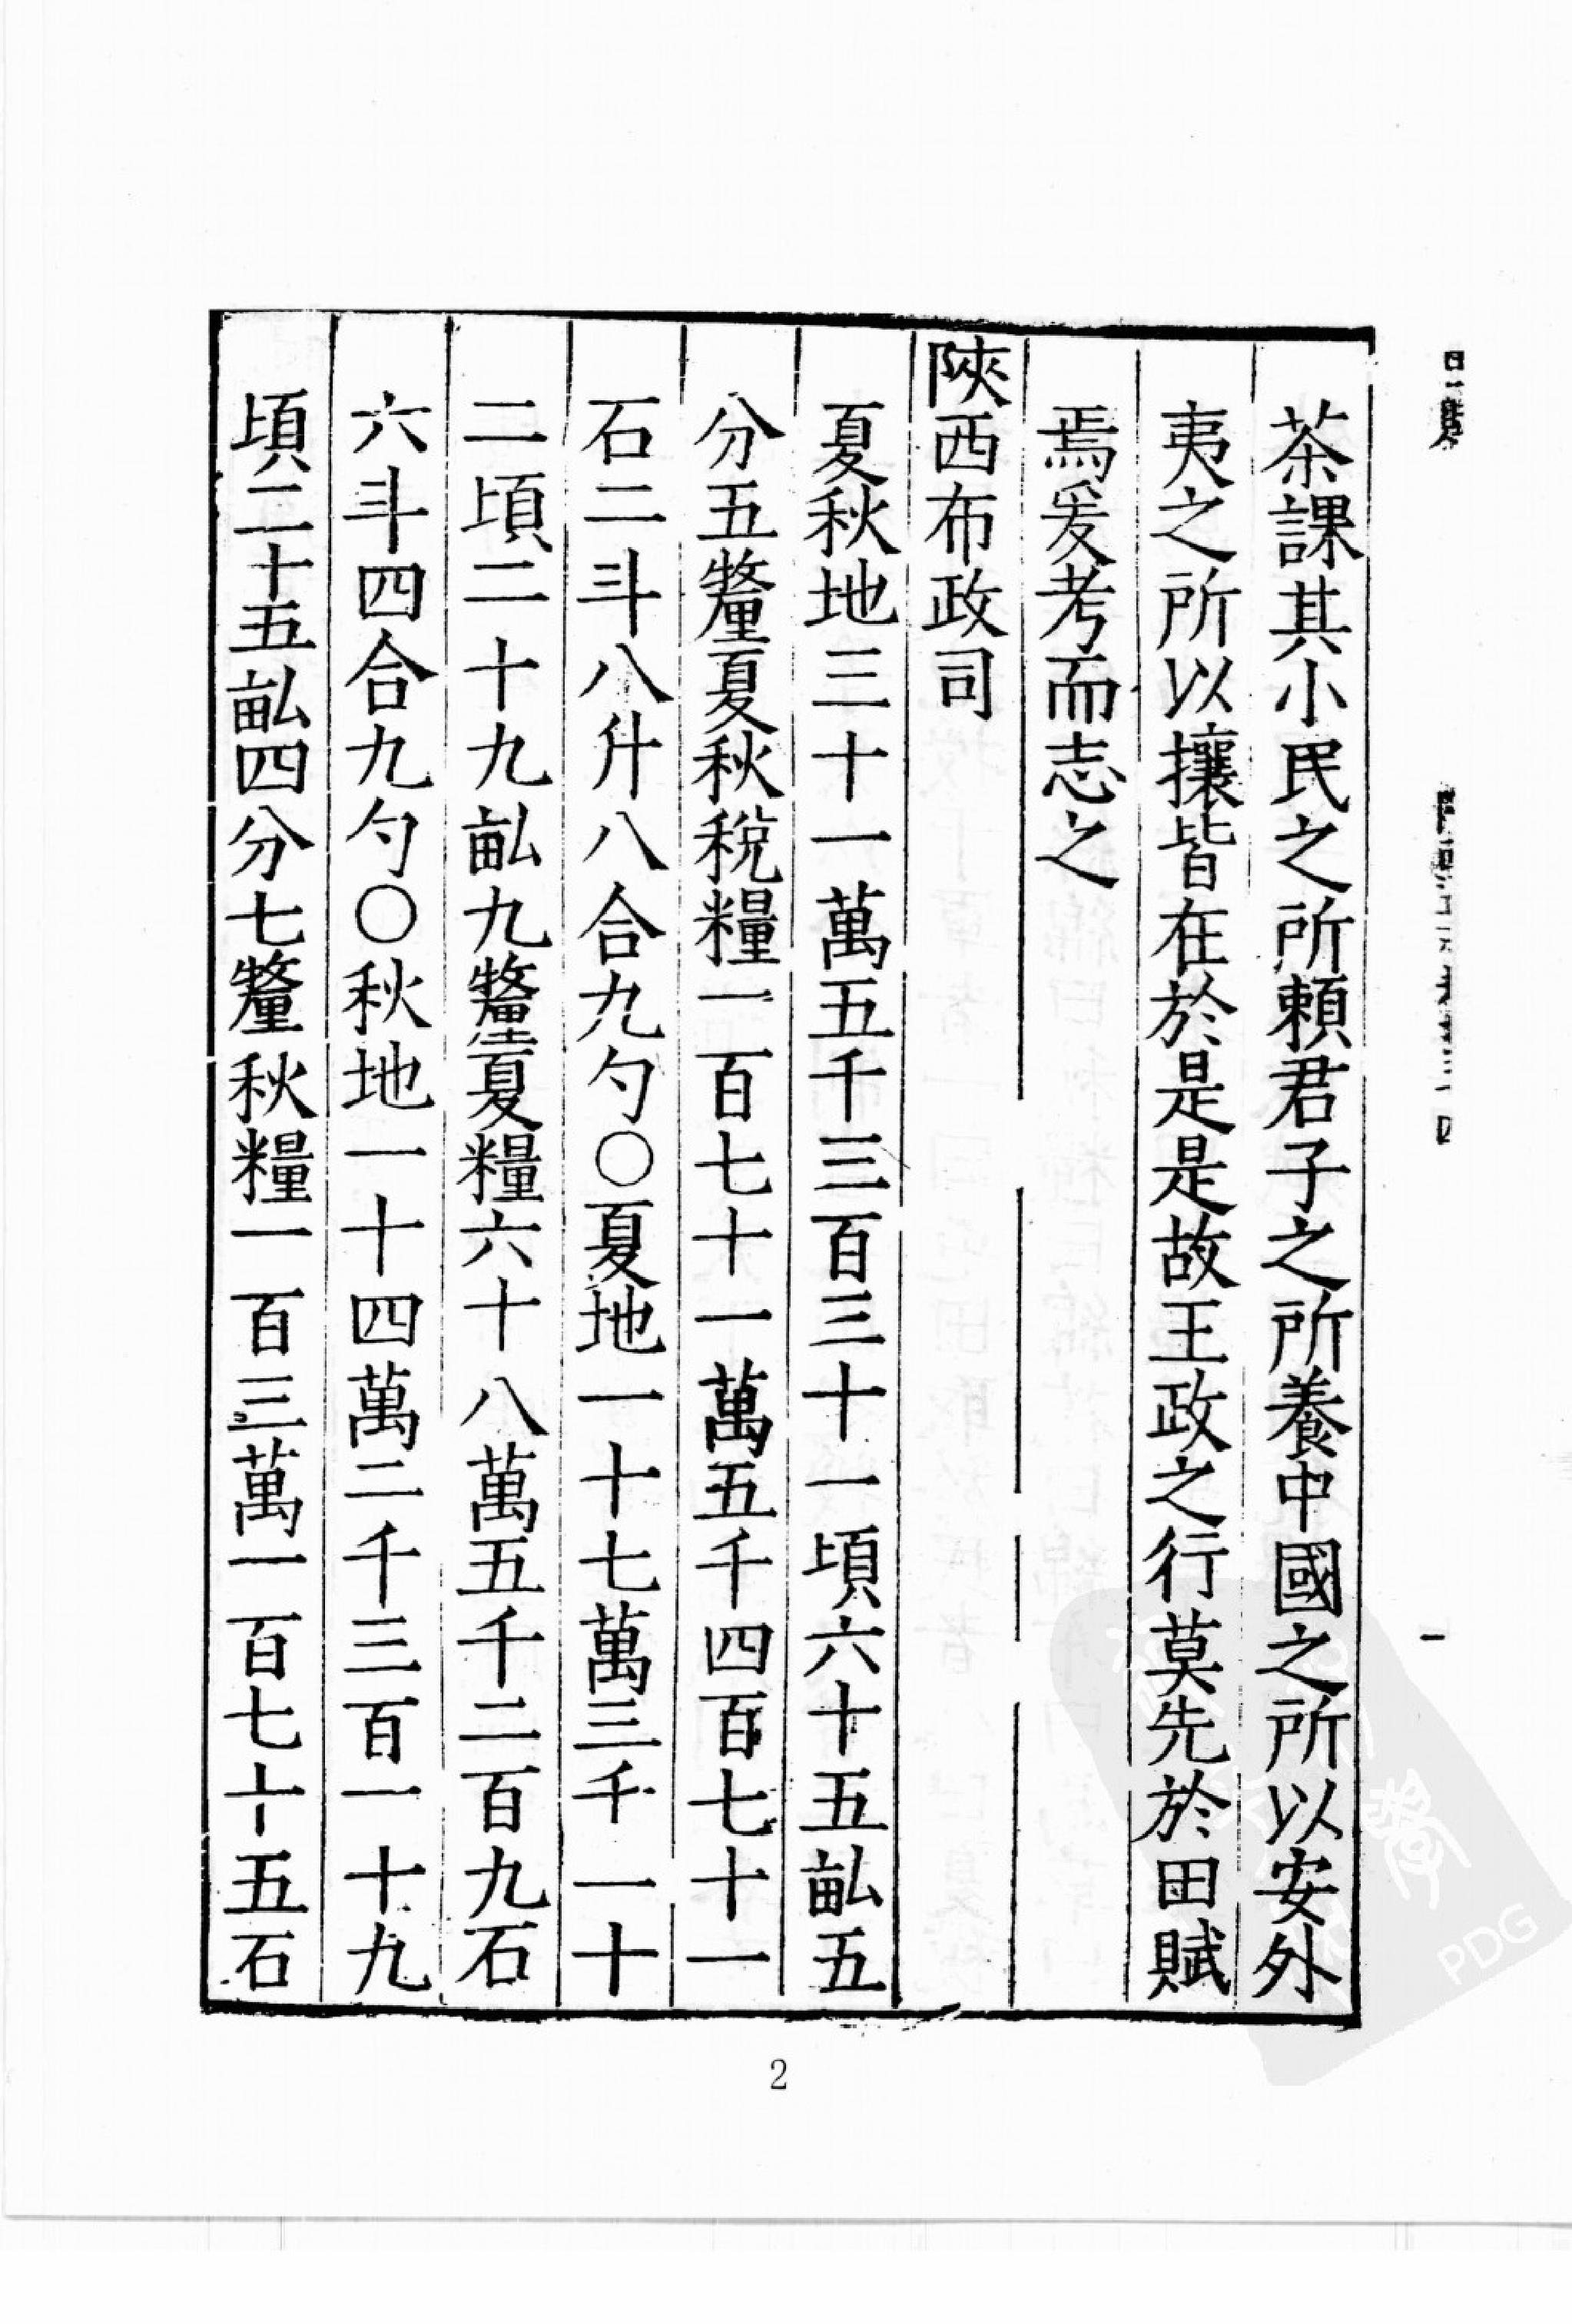 茶課其小民之所賴君子之所養中國之所以安外
夷之所以攘皆在於是是故王政之行莫先於田賦
焉爰考而志之
陝西布政司
夏秋地三十一萬五千三百三十一頃六十五畝五
分五釐夏秋稅糧一百七十一萬五千四百七十一
石二斗八升八合九勺〇夏地一十七萬三千一十
二頃二十九畝九釐夏糧六十八萬五千二百九石
六斗四合九勺〇秋地一十四萬二千三百一十九
頃二十五畝四分七釐秋糧一百三萬一百七十五石
2
PDG